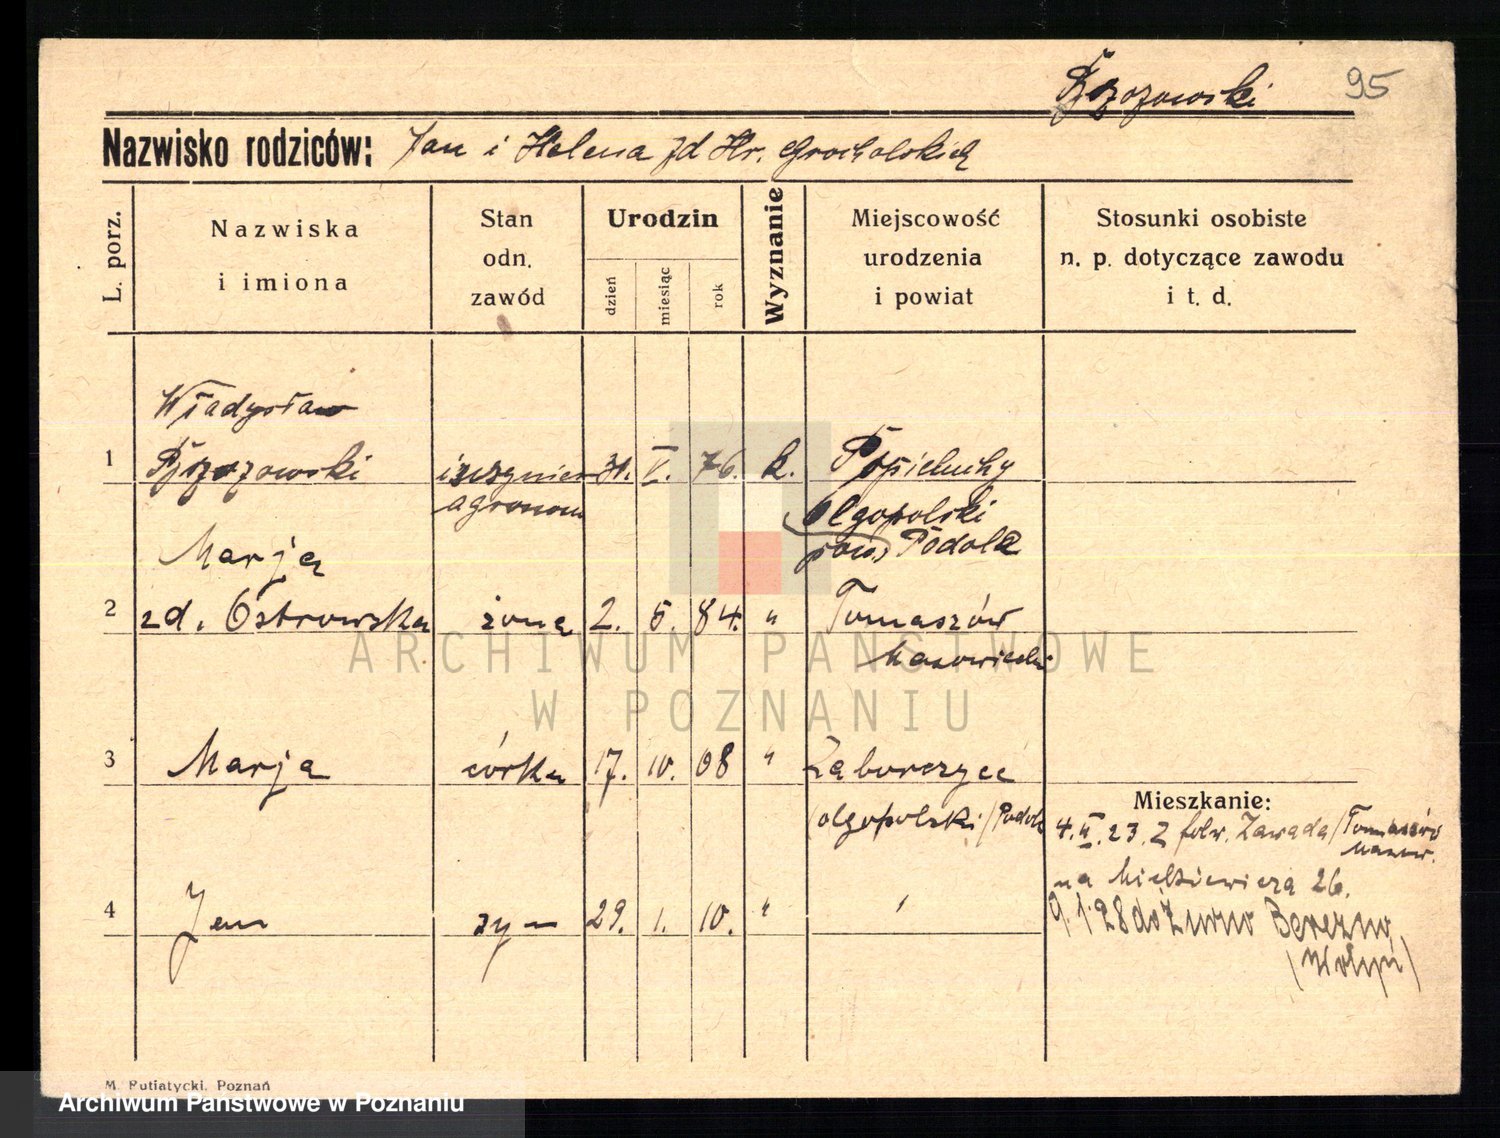 Brzozowski 95
Nazwisko rodziców: Jan i Helena zd Hr. Grocholskich
L. porz.
Nazwiska i imiona
Stan odn. zawód
Urodzin
dzień
miesiąc
rok
Wyznanie
Miejscowość urodzenia i powiat
Stosunki osobiste n. p. dotyczące zawodu i t. d.
Władysław
1 Brzozowski inżynier 31. V. 76. k. Popieluchy
agronom Olgopolski
pow. Podole
Marja
2 zd. Ostrowska żona 2. 5. 84. " Tomaszów
Mazowiecki
3 Marja córka 17. 10. 08 "
Mieszkanie:
(olgopolski/Podole
4. 23. Z folw. Zawada/Tomaszów
Mazow.
na Mickiewicza 26.
4 Jan syn 29. 1. 10. "
9.1.28 do Berezno
(Wołyń)
M. Putiatycki, Poznań
ARCHIWUM PAŃSTWOWE
W POZNANIU
Archiwum Państwowe w Poznaniu